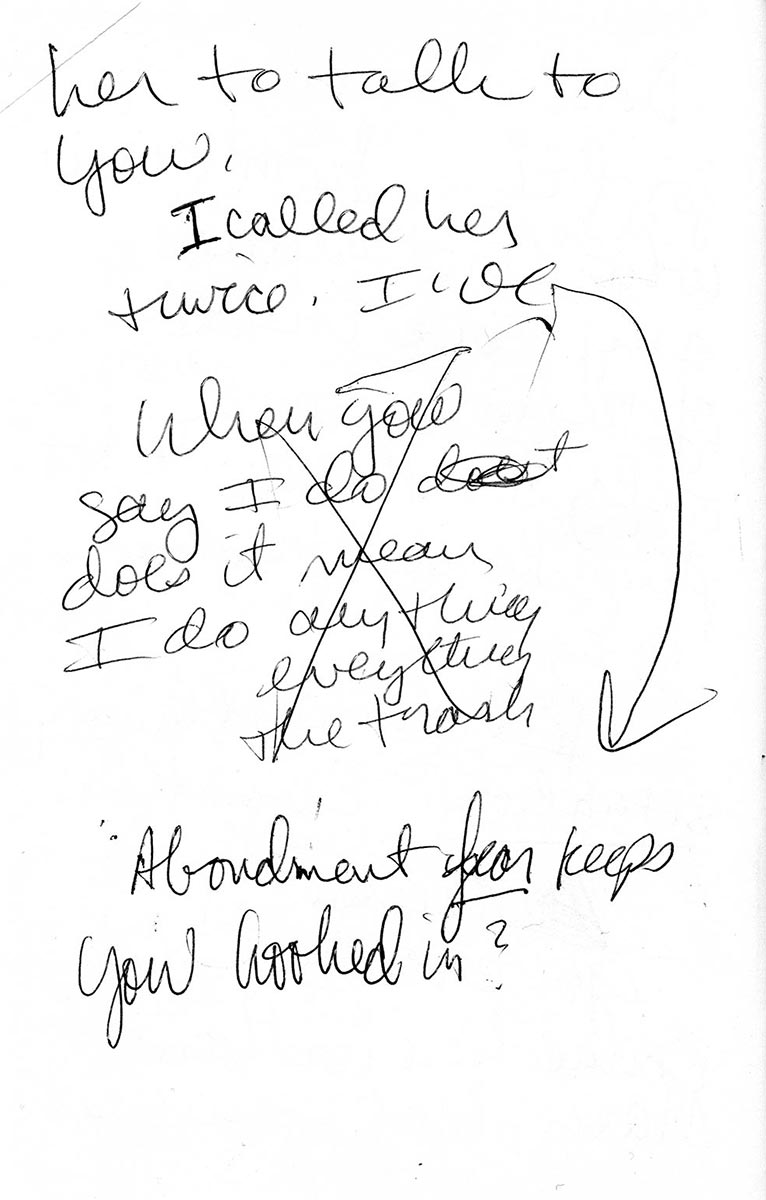 her to talk to
you.
I called her
twice. I'd
When you
say I do
does it mean
I do anything
everything
the trash
Abondment fear keeps
you hooked in?